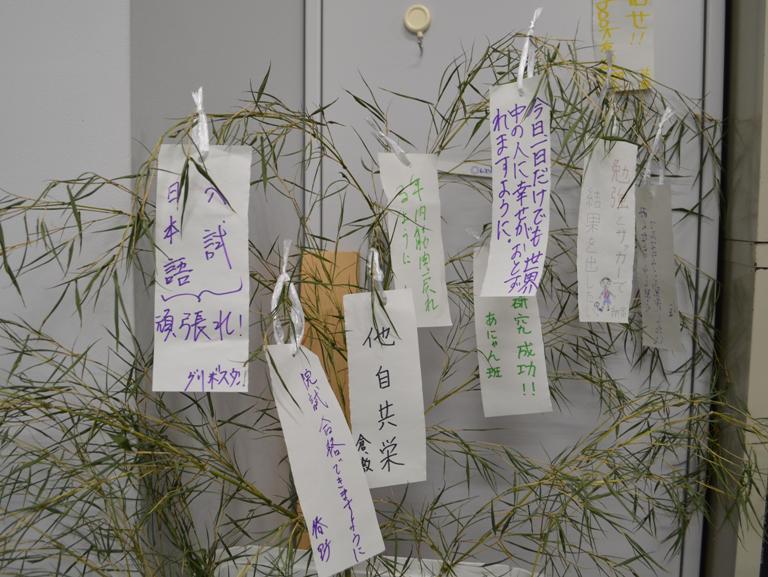 入試
日本語
頑張れ!
院試合格できますように
他自共栄
年内筋肉戻れ
るように
今日一日だけでも世界
中の人に幸せがおとず
れますように。
研究成功!!
あにゃん班
勉強とサッカーで
結果を出した
せ!!